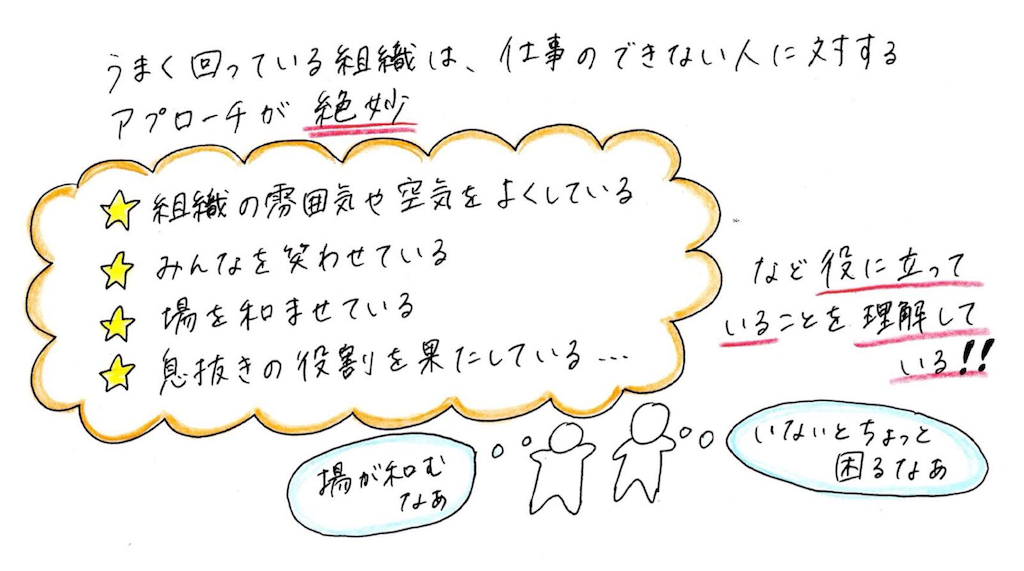 うまく回っている組織は、仕事のできない人に対する
アプローチが 絶妙
組織の雰囲気や空気をよくしている
みんなを笑わせている
場を和ませている
息抜きの役割を果たしている…
など役に立って
いることを理解して
いる!!
場が和む
なぁ
いないとちょっと
困るなぁ